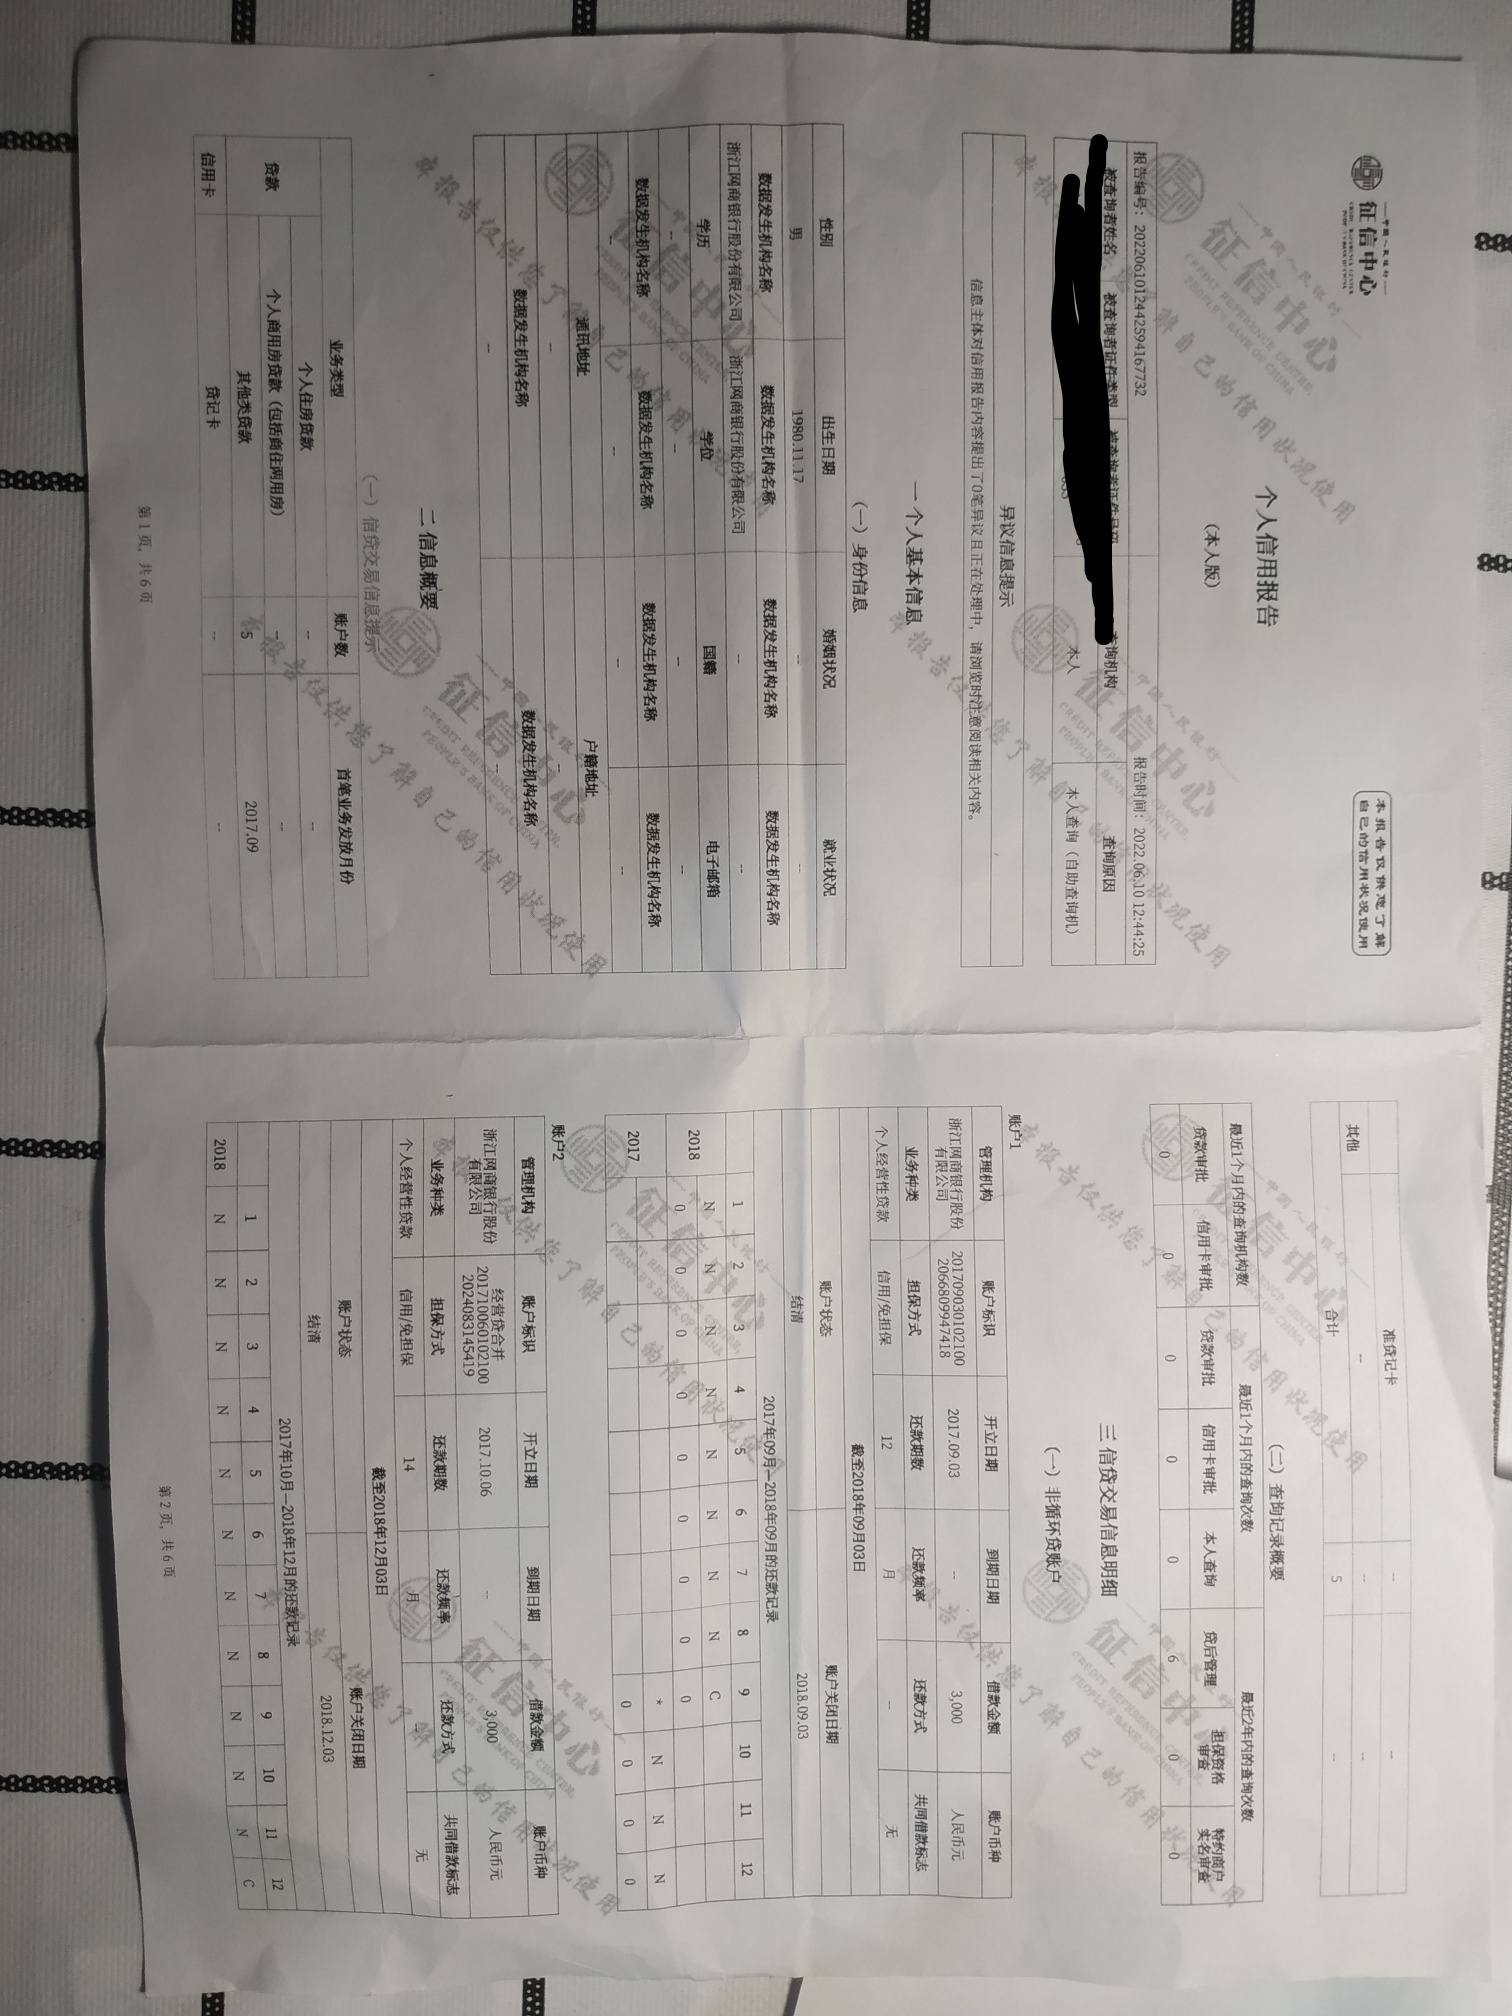 中国人民银行
征信中心
CREDIT REFERENCE CENTER,
PEOPLE'S BANK OF CHINA
本报告仅供您了解
自己的信用状况使用
个人信用报告
（本人版）
报告编号：2022061012442594167732 报告时间：2022.06.10 12:44:25
被查询者姓名 被查询者证件类型 被查询者证件号码 查询机构 查询原因
本人 本人查询（自助查询机）
异议信息提示
信息主体对信用报告内容提出了0笔异议且正在处理中，请浏览时注意阅读相关内容。
一 个人基本信息
（一）身份信息
性别 出生日期 婚姻状况 就业状况
男 1980.11.17 -- --
数据发生机构名称 数据发生机构名称 数据发生机构名称 数据发生机构名称
浙江网商银行股份有限公司 浙江网商银行股份有限公司 -- --
学历 学位 国籍 电子邮箱
-- -- -- --
数据发生机构名称 数据发生机构名称 数据发生机构名称 数据发生机构名称
-- -- -- --
通讯地址 户籍地址
-- --
数据发生机构名称 数据发生机构名称
-- --
二 信息概要
（一）信贷交易信息提示
业务类型 账户数 首笔业务发放月份
贷款 个人住房贷款 -- --
个人商用房贷款（包括商住两用房） -- --
其他类贷款 5 2017.09
信用卡 贷记卡 -- --
第 1 页，共 6 页
准贷记卡 -- --
其他 -- -- --
合计 5 --
（二）查询记录概要
最近1个月内的查询机构数 最近1个月内的查询次数 最近2年内的查询次数
贷款审批 信用卡审批 贷款审批 信用卡审批 本人查询 贷后管理 担保资格审查 特约商户实名审查
0 0 0 0 0 6 0 0
三 信贷交易信息明细
（一）非循环贷账户
账户1
管理机构 账户标识 开立日期 到期日期 借款金额 账户币种
浙江网商银行股份有限公司 2017090301021002066809947418 2017.09.03 -- 3,000 人民币元
业务种类 担保方式 还款期数 还款频率 还款方式 共同借款标志
个人经营性贷款 信用/免担保 12 月 -- 无
截至2018年09月03日
账户状态 账户关闭日期
结清 2018.09.03
2017年09月—2018年09月的还款记录
1 2 3 4 5 6 7 8 9 10 11 12
2018 N N N N N N N N C
0 0 0 0 0 0 0 0 0
2017 * N N N
0 0 0 0
账户2
管理机构 账户标识 开立日期 到期日期 借款金额 账户币种
浙江网商银行股份有限公司 经营贷合并20171006010210020240831454​19 2017.10.06 -- 3,000 人民币元
业务种类 担保方式 还款期数 还款频率 还款方式 共同借款标志
个人经营性贷款 信用/免担保 14 月 -- 无
截至2018年12月03日
账户状态 账户关闭日期
结清 2018.12.03
2017年10月—2018年12月的还款记录
1 2 3 4 5 6 7 8 9 10 11 12
2018 N N N N N N N N N N N C
第 2 页，共 6 页